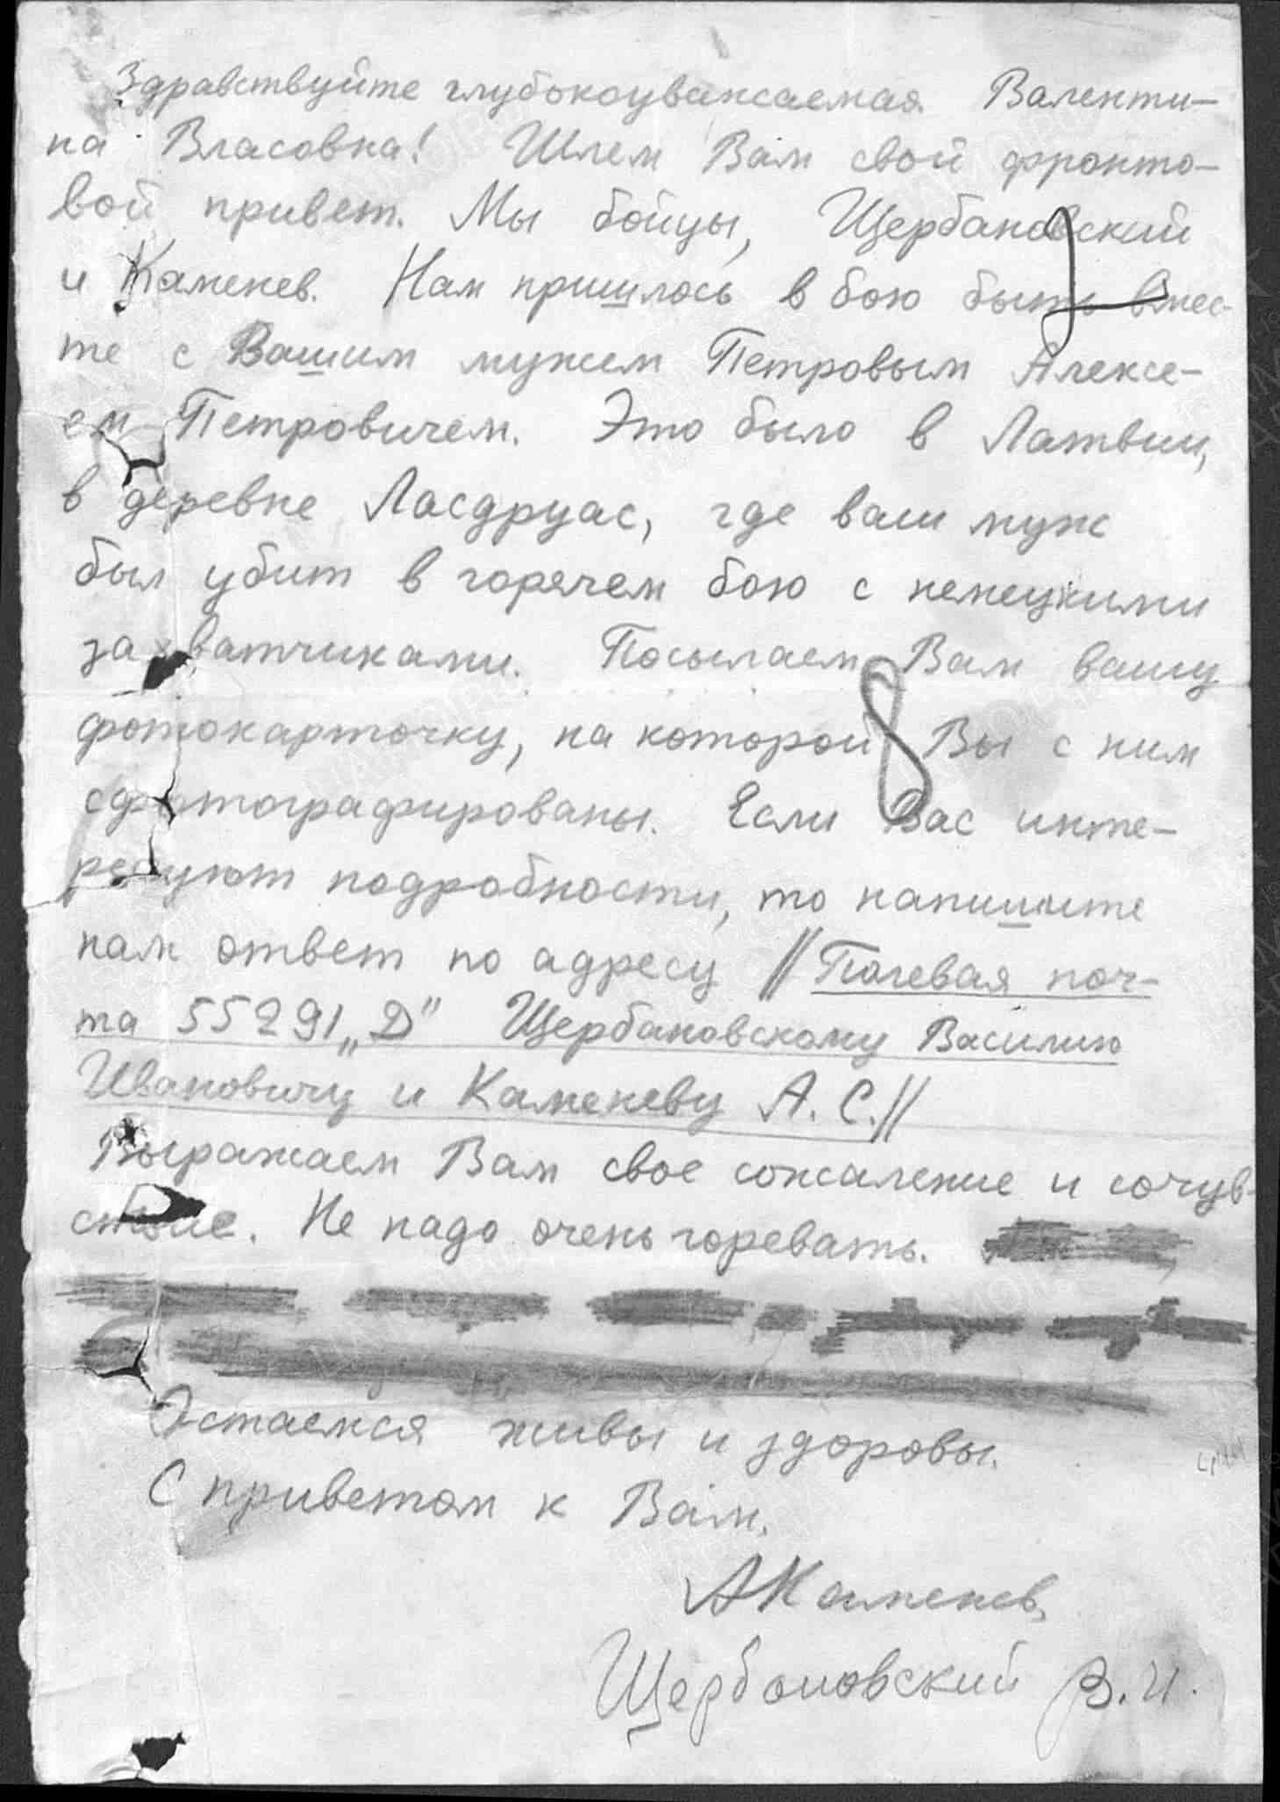 Здравствуйте глубокоуважаемая Валенти-
на Власовна! Шлем Вам свой фронто-
вой привет. Мы бойцы, Щербановский
и Каменев. Нам пришлось в бою быть вмес-
те с Вашим мужем Петровым Алексе-
ем Петровичем. Это было в Латвии,
в деревне Ласдруас, где ваш муж
был убит в горячем бою с немецкими
захватчиками. Посылаем Вам вашу
фотокарточку, на которой Вы с ним
сфотографированы. Если Вас инте-
ресуют подробности, то напишите
нам ответ по адресу // Полевая поч-
та 55291 „Д" Щербановскому Василию
Ивановичу и Каменеву А. С. //
Выражаем Вам свое сожаление и сочув-
ствие. Не надо очень горевать.
Остаемся живы и здоровы.
С приветом к Вам.
АКаменев,
Щербановский В. И.